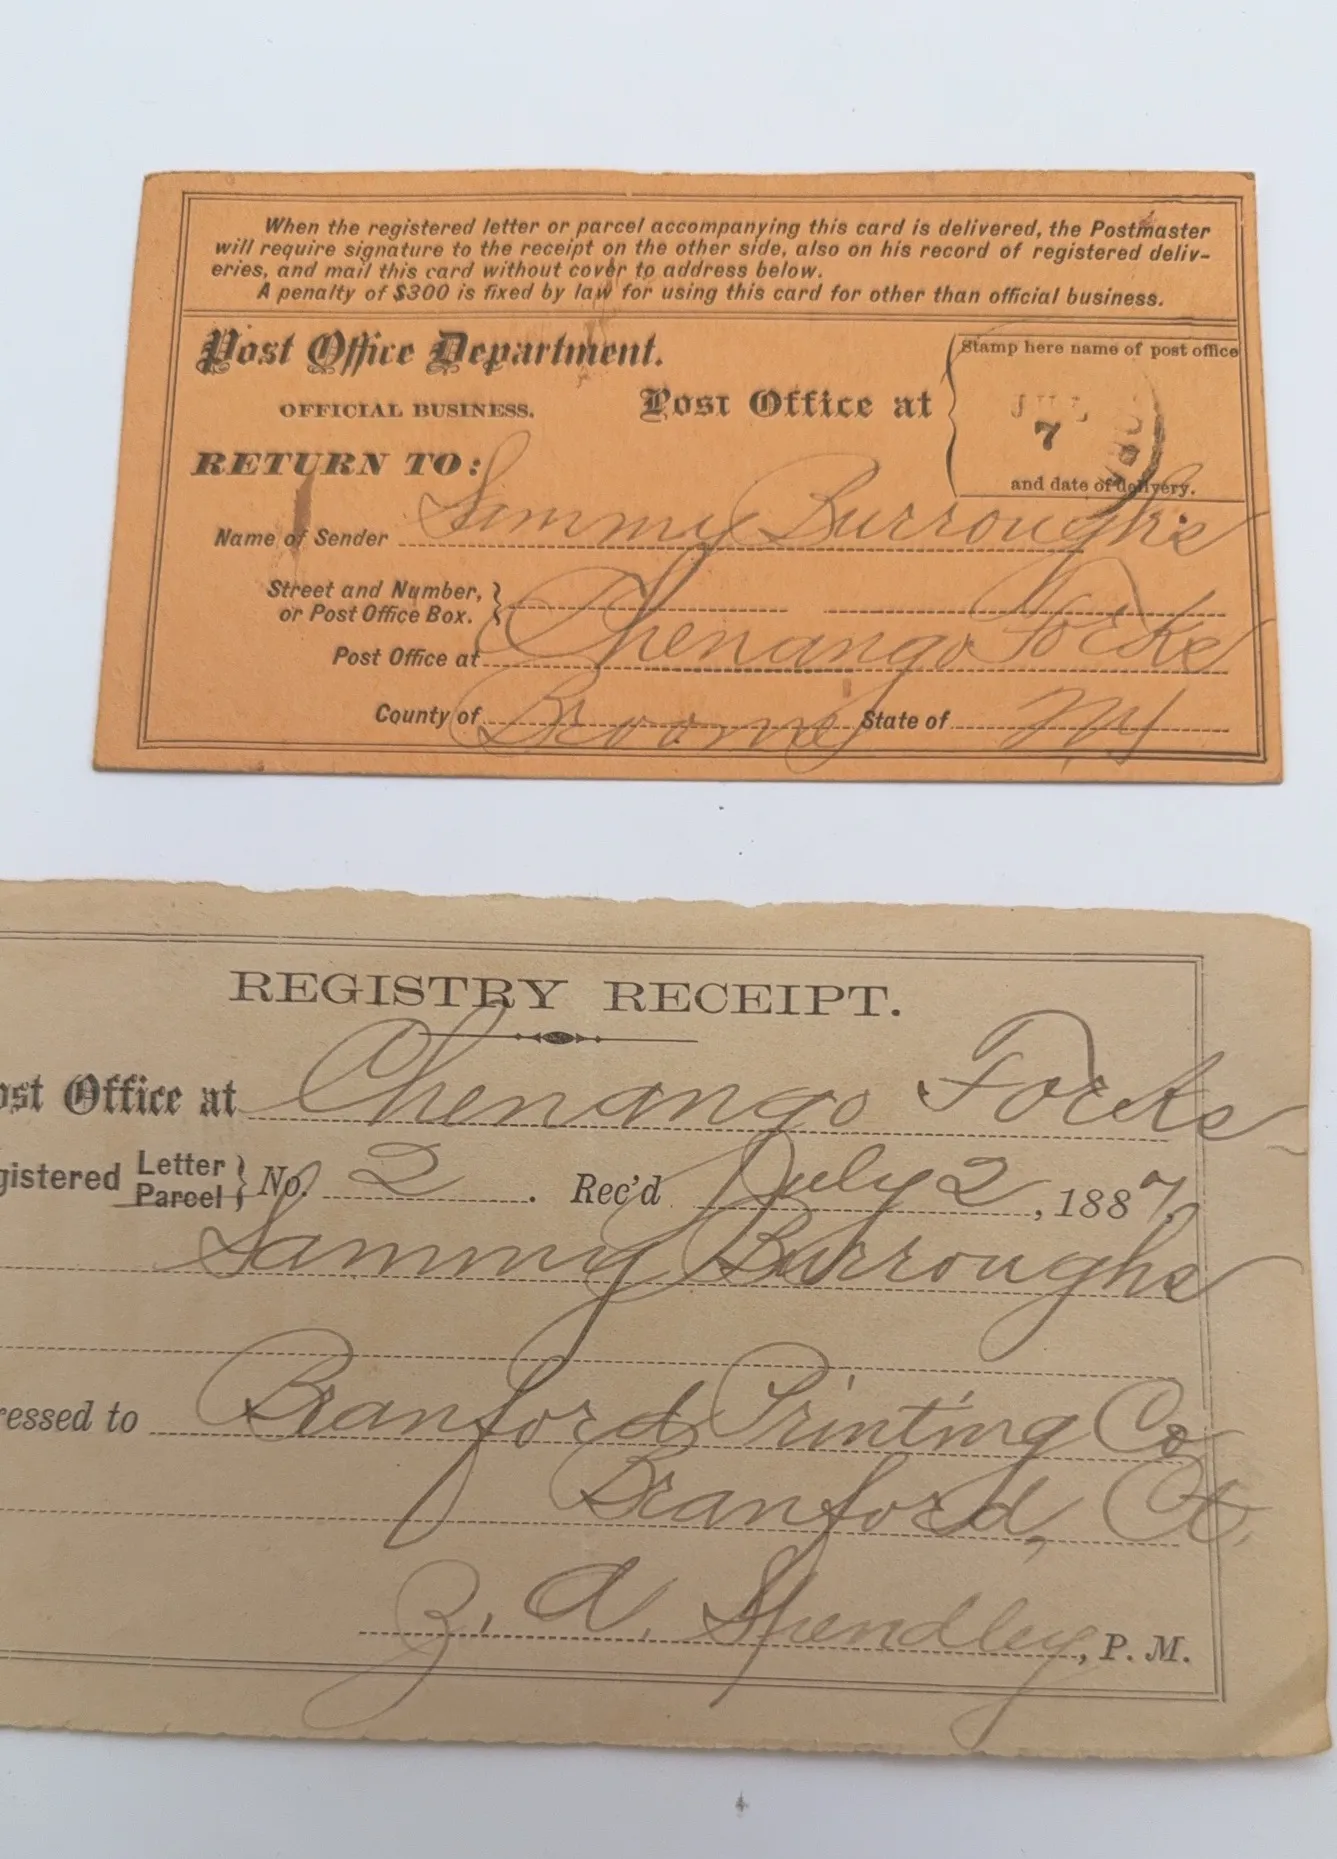 When the registered letter or parcel accompanying this card is delivered, the Postmaster
will require signature to the receipt on the other side, also on his record of registered deliv-
eries, and mail this card without cover to address below.
A penalty of $300 is fixed by law for using this card for other than official business.
Post Office Department.
OFFICIAL BUSINESS.
Post Office at
Stamp here name of post office
JUL
7
and date of delivery.
RETURN TO:
Name of Sender Sammy Burroughs
Street and Number,
or Post Office Box.
Post Office at Chenango Forks
County of Broome State of NY
REGISTRY RECEIPT.
ost Office at Chenango Forks
gistered Letter
Parcel } No. 2. Rec'd July 2, 1887.
Sammy Burroughs
ressed to Branford Printing Co
Branford, Ct.
Z. A. Spendley, P. M.